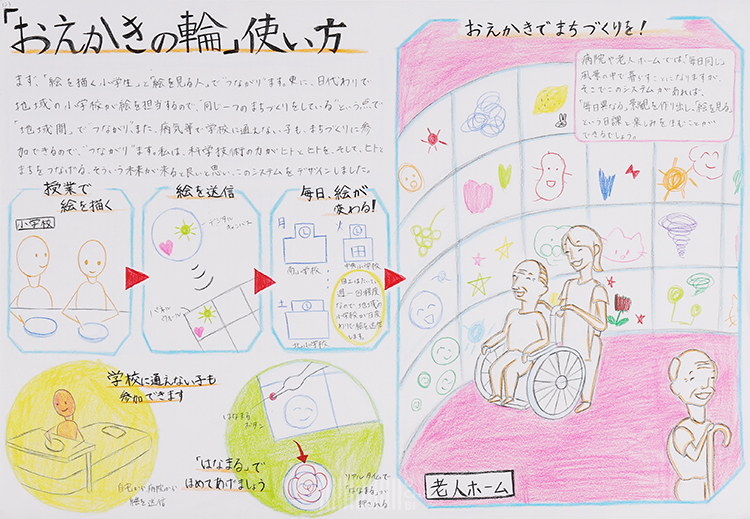 「おえかきの輪」使い方
まず、「絵を描く小学生」と「絵を見る人」で"つながり"ます。更に、日代わりで
地域の小学校が絵を担当するので、"同じ一つのまちづくりをしている"という点で
「地域間」で"つながり"ます。また、病気等で学校に通えない子も、まちづくりに参
加できるので、"つながり"ます。私は、科学技術の力がヒトとヒトを、そして、ヒトと
まちをつなげる、そういう未来が来ると良いと思い、このシステムをデザインしました。
授業で
絵を描く
小学校
絵を送信
デジタル
キャンバス
パネル
ウォール
毎日、絵が
変わる!
月
南小学校
火
小学校
土
北小学校
週一回程度
なので、地域の
小学校が日
わりで絵を送信
します。
学校に通えない子も
参加できます
自宅から病院から
絵を送信
はなまる
ボタン
「はなまる」で
ほめてあげましょう
リアルタイムで
「はなまる」が
押される
おえかきでまちづくりを!
病院や老人ホームでは、「毎日同じ」
風景の中で暮らすことになりますが、
そこでこのシステムがあれば、
「毎日異なる」景観を作り出し、「絵を見る」
という日課と楽しみを生むことが
できるでしょう。
老人ホーム